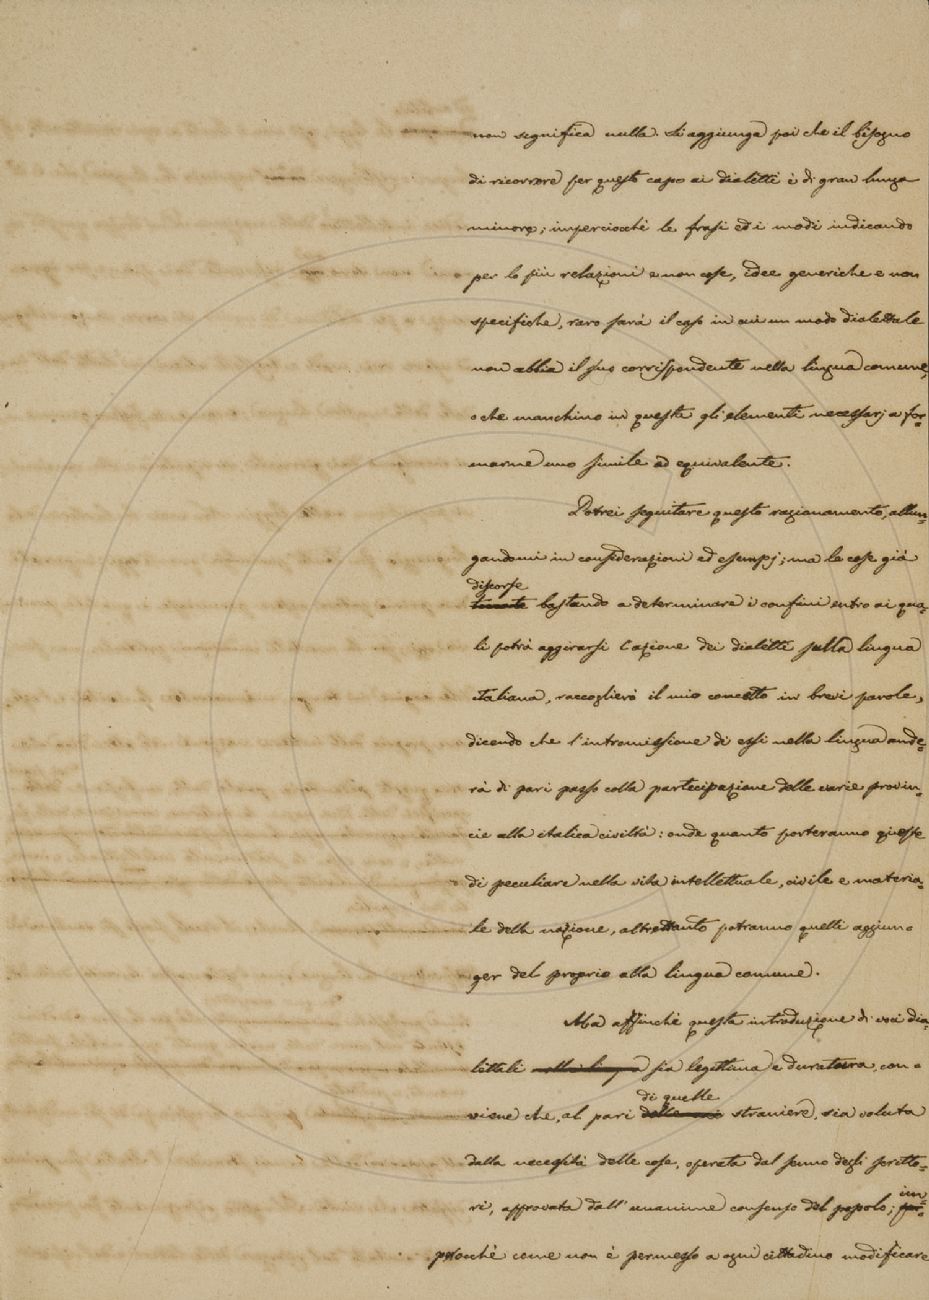 non significa nulla. Si aggiunga poi che il bisogno
di ricorrere per questo capo ai dialetti è di gran lunga
minore; imperciocchè le frasi ed i modi indicando
per lo più relazioni e non cose, idee generiche e non
specifiche, raro sarà il caso in cui un modo dialettale
non abbia il suo corrispondente nella lingua comune,
o che manchino in questa gli elementi necessarj a for-
marne uno simile od equivalente.
Potrei seguitare questo ragionamento, allun-
gandomi in considerazioni ed esempj; ma le cose già
discorse
bastando a determinare i confini entro ai qua-
li potrà aggirarsi l'azione dei dialetti sulla lingua
italiana, raccoglierò il mio concetto in brevi parole,
dicendo che l'intromissione di essi nella lingua ande-
rà di pari passo colla partecipazione delle varie provin-
cie alla italica civiltà: onde quanto porteranno queste
di peculiare nella vita intellettuale, civile e materia-
le della nazione, altrettanto potranno quelli aggiun-
ger del proprio alla lingua comune.
Ma affinchè questa introduzione di voci dia-
lettali alla lingua sia legittima e duratura, con-
di quelle
viene che, al pari delle straniere, sia voluta
dalla necessità delle cose, operata dal senno degli scritto-
im-
ri, approvata dall'unanime consenso del popolo; per-
perocchè come non è permesso a ogni cittadino modificare